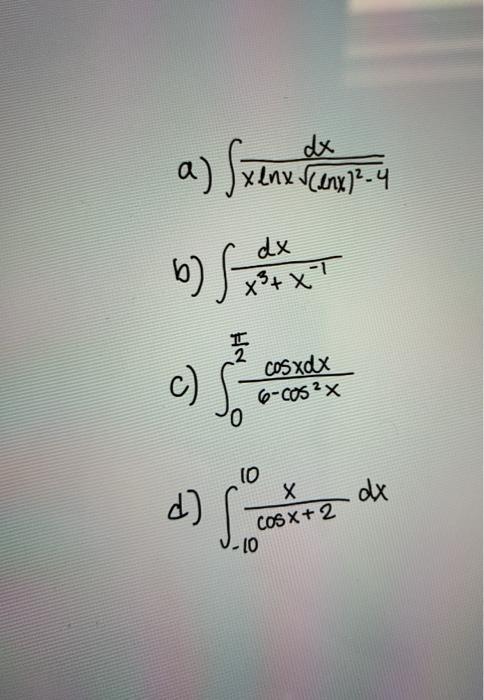 a) ∫ dx / (x lnx √((lnx)²-4))
b) ∫ dx / (x³ + x⁻¹)
c) ∫₀^(π/2) cosxdx / (6-cos²x)
d) ∫₋₁₀^10 x / (cosx+2) dx